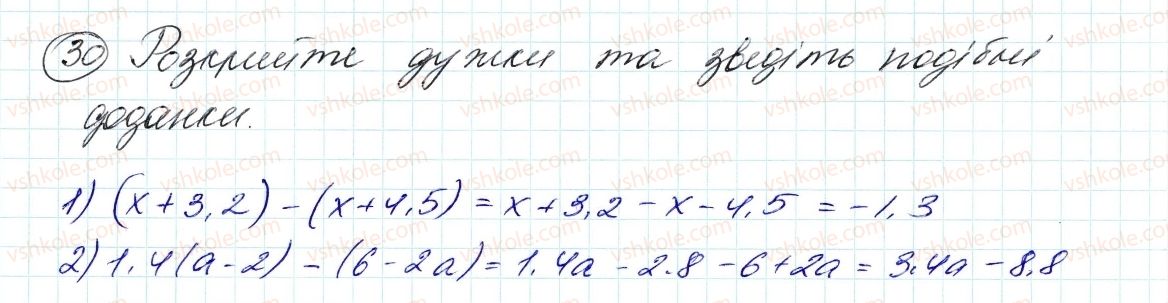 30 Розкрийте дужки та зведіть подібні
доданки.
1) (x + 3,2) - (x + 4,5) = x + 3,2 - x - 4,5 = -1,3
2) 1,4(a - 2) - (6 - 2a) = 1,4a - 2.8 - 6 + 2a = 3,4a - 8,8